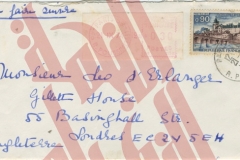 faire suivre
0,90
Monsieur Leo d'Erlanger
Gillett House
55 Basinghall Str.
Londres EC2V 5EH
Angleterre